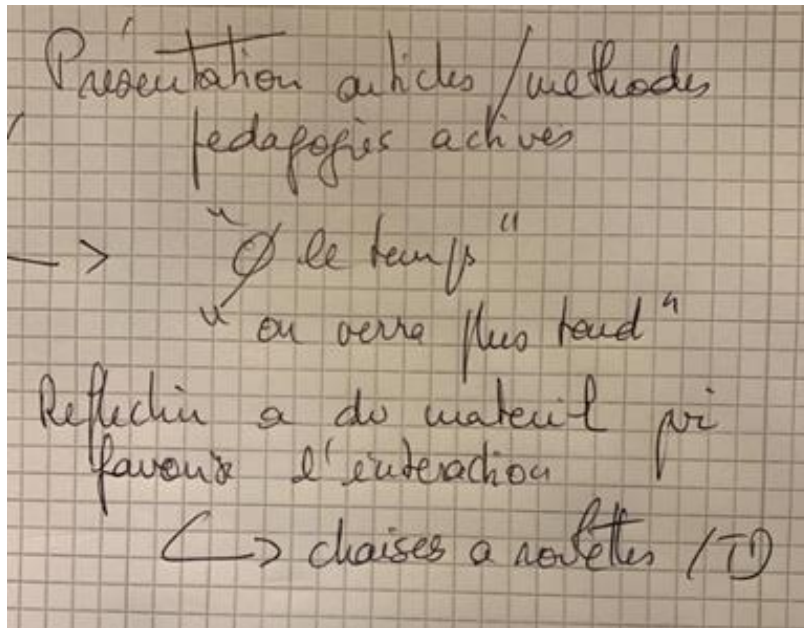 Présentation articles / methodes
pedagogies actives
—> "Ø le temps"
"on verra plus tard"
Reflechir a du materiel qui
favorise l'interaction
↳ chaises a roulettes / TD